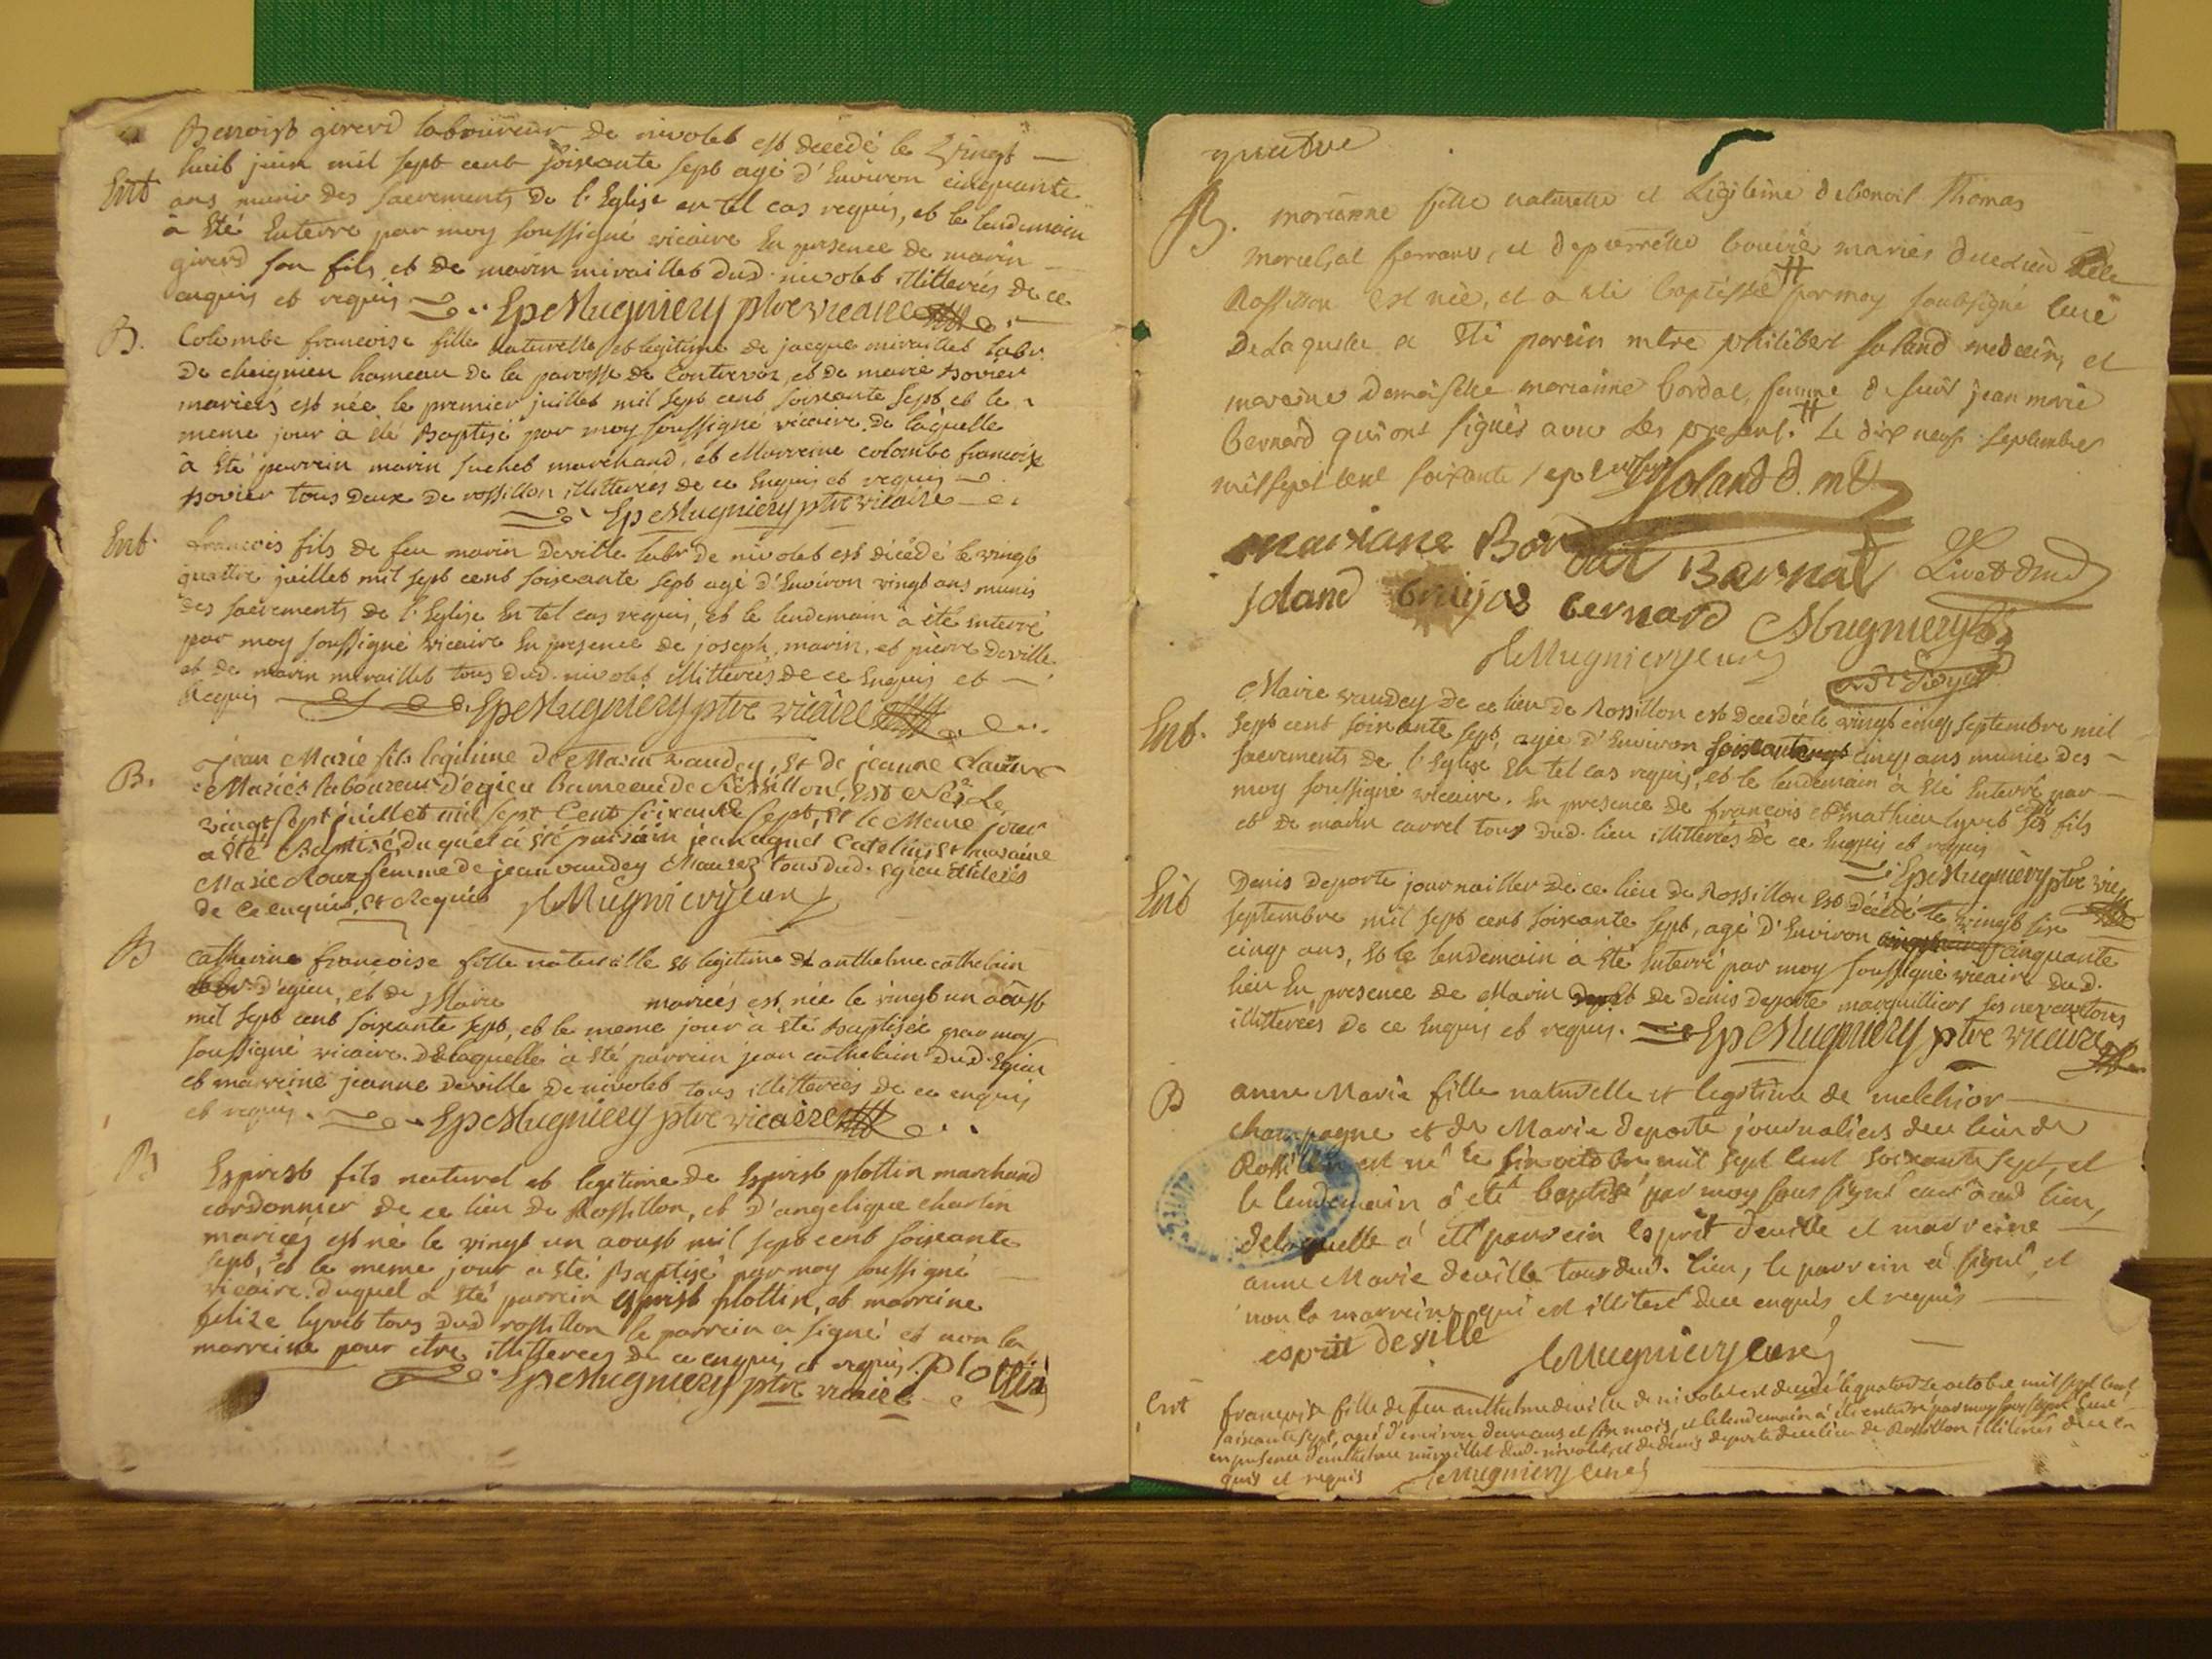 Benoist girerd laboureur de nivolet est decedé le vingt
huit juin mil sept cent soixante sept agé d'Environ cinquante
Ent ans munis des sacrements de l'Eglise en tel cas requis, et le lendemain
à Eté Enterré par moy soussigné vicaire En presence de marin
girerd son fils et de marin miraillet dud. nivolet illitterés de ce
enquis et requis EpeMugniery ptre vicaire
B. Colombe francoise fille naturelle et legitime de jacque miraillet labr.
de cheignieu hameau de la paroisse de Contrevoz, et de marie bovier
mariés est née le premier juillet mil sept cent soixante sept et le
meme jour à été Baptisé par moy soussigné vicaire. De laquelle
à Eté parrein marin suchet marchand, et Marreine colombe francoise
bovier tous deux de rossillon illitterés de ce Enquis et requis
EpeMugniery ptre vicaire
Ent. francois fils de feu marin deville labr de nivolet est décédé le vingt
quattre juillet mil sept cent soixante sept agé d'Environ vingt ans munis
des sacrements de l'Eglise En tel cas requis, et le lendemain a été enterré
par moy soussigné vicaire En presence de joseph, marin, et pierre deville
et de marin miraillet tous dud. nivolet illitterés de ce Enquis et
Requis EpeMugniery ptre vicaire
B. jean Marie fils legitime de Marin vaudey, Et de jeanne
Mariés laboureur d'égieu hameau de Rossillon, Est Né Le
vingt sept juillet mil sept Cent soixante sept, et le Meme jour
a Eté Baptisé, duquel à Eté parrain jean Catelin et maraine
Marie Roux femme de jean vaudey tous dud. Egieu
de Ce enquis, Et Requis leMugniery curé
B Catherine francoise fille naturelle et legitime d'anthelme cathelain
d'egieu, et de Marie mariés est née le vingt un aoust
mil sept cent soixante sept, et le meme jour à Eté baptisée par moy
soussigné vicaire. De laquelle à Eté parrein jean cathelain dud. Egieu
et marreine jeanne deville de nivolet tous illitterés de ce enquis
et requis. EpeMugniery ptre vicaire
B Esprist fils naturel et legitime de Esprist plottin marchand
cordonnier de ce lieu de Rossillon, et d'angelique charlin
mariés est né le vingt un aoust mil sept cent soixante
sept, et le meme jour a Eté Baptisé par moy soussigné
vicaire. duquel a Eté parrein Esprist plottin, et marreine
felize lyvet tous dud rossillon le parrein a signé et non la
marreine pour etre illitterée de ce enquis et requis. plottin
EpeMugniery ptre vicaire
quatre
B. marianne fille naturelle et Legitime de benoit Thomas
marechal ferrant, et de pierrette bouvié mariés du lieu de
Rossillon est née, et a eté baptisée # par moy soubsigné curé
De Laquelle a eté parein mtre philibert soland medecin, et
maraine Demoiselle marianne bordat, femme de sieur jean marie
bernard qui ont signés avec Les presens. # Le dix neuf septembre
mil sept cent soixante sept Soland d. m
mariane Bordat Barnat
soland brujas bernard Mugniery
leMugniery curé
Marie vaudey de ce lieu de Rossillon est decedée le vingt cinq septembre mil
Ent. sept cent soixante sept, agée d'Environ cinq ans munie des
sacrements de l'Eglise En tel cas requis, et le lendemain à Eté Enterré par
moy soussigné vicaire. En presence de francois et mathieu lyvet ses fils
et de marin carrel tous dud. lieu illitterés de ce Enquis et requis
EpeMugniery ptre vic
Ent Denis deporte journailler de ce lieu de Rossillon Est Décédé le vingt six
septembre mil sept cent soixante sept, agé d'Environ cinquante
cinq ans, Et le lendemain à Eté Enterré par moy soussigné vicaire dud.
lieu En presence de Marin et de Denis deporte marguilliers ses neveux tous
illitterés de ce Enquis et requis. EpeMugniery ptre vicaire
B anne Marie fille naturelle et legitime de melchior
champagne et de Marie deporte journaliers de ce lieu de
Rossillon est né le six octobre mil sept cent soixante sept, et
le lendemain à eté baptisé par moy sous signé curé aud lieu,
de laquelle à eté parrein Esprit deville et marreine
anne Marie deville tous dud. lieu, le parrein a signé, et
non la marreine, qui est illiteré de ce enquis et requis
esprit deville
leMugniery curé
Ent françoise fille de feu anthelme deville de nivolet est decedé le quatorze octobre mil sept cent
soixante sept, agé d'environ deux ans et six mois, et le lendemain à eté enterré par moy sous signé curé
en presence d'anthelme miraillet dud. nivolet, et de denis deporte de ce lieu de Rossillon, illiterés de ce en
quis et requis leMugniery curé